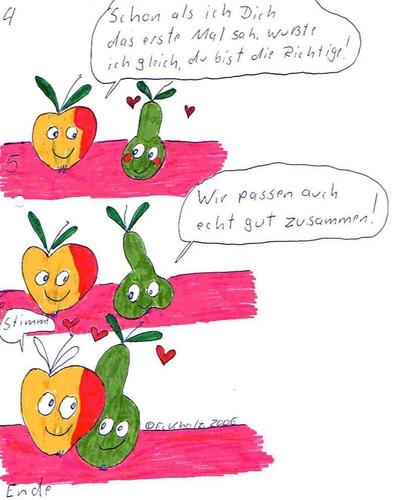 4
Schon als ich Dich
das erste Mal sah, wußte
ich gleich, du bist die Richtige!
5
Wir passen auch
echt gut zusammen!
Stimmt
© Eckholz 2006
Ende